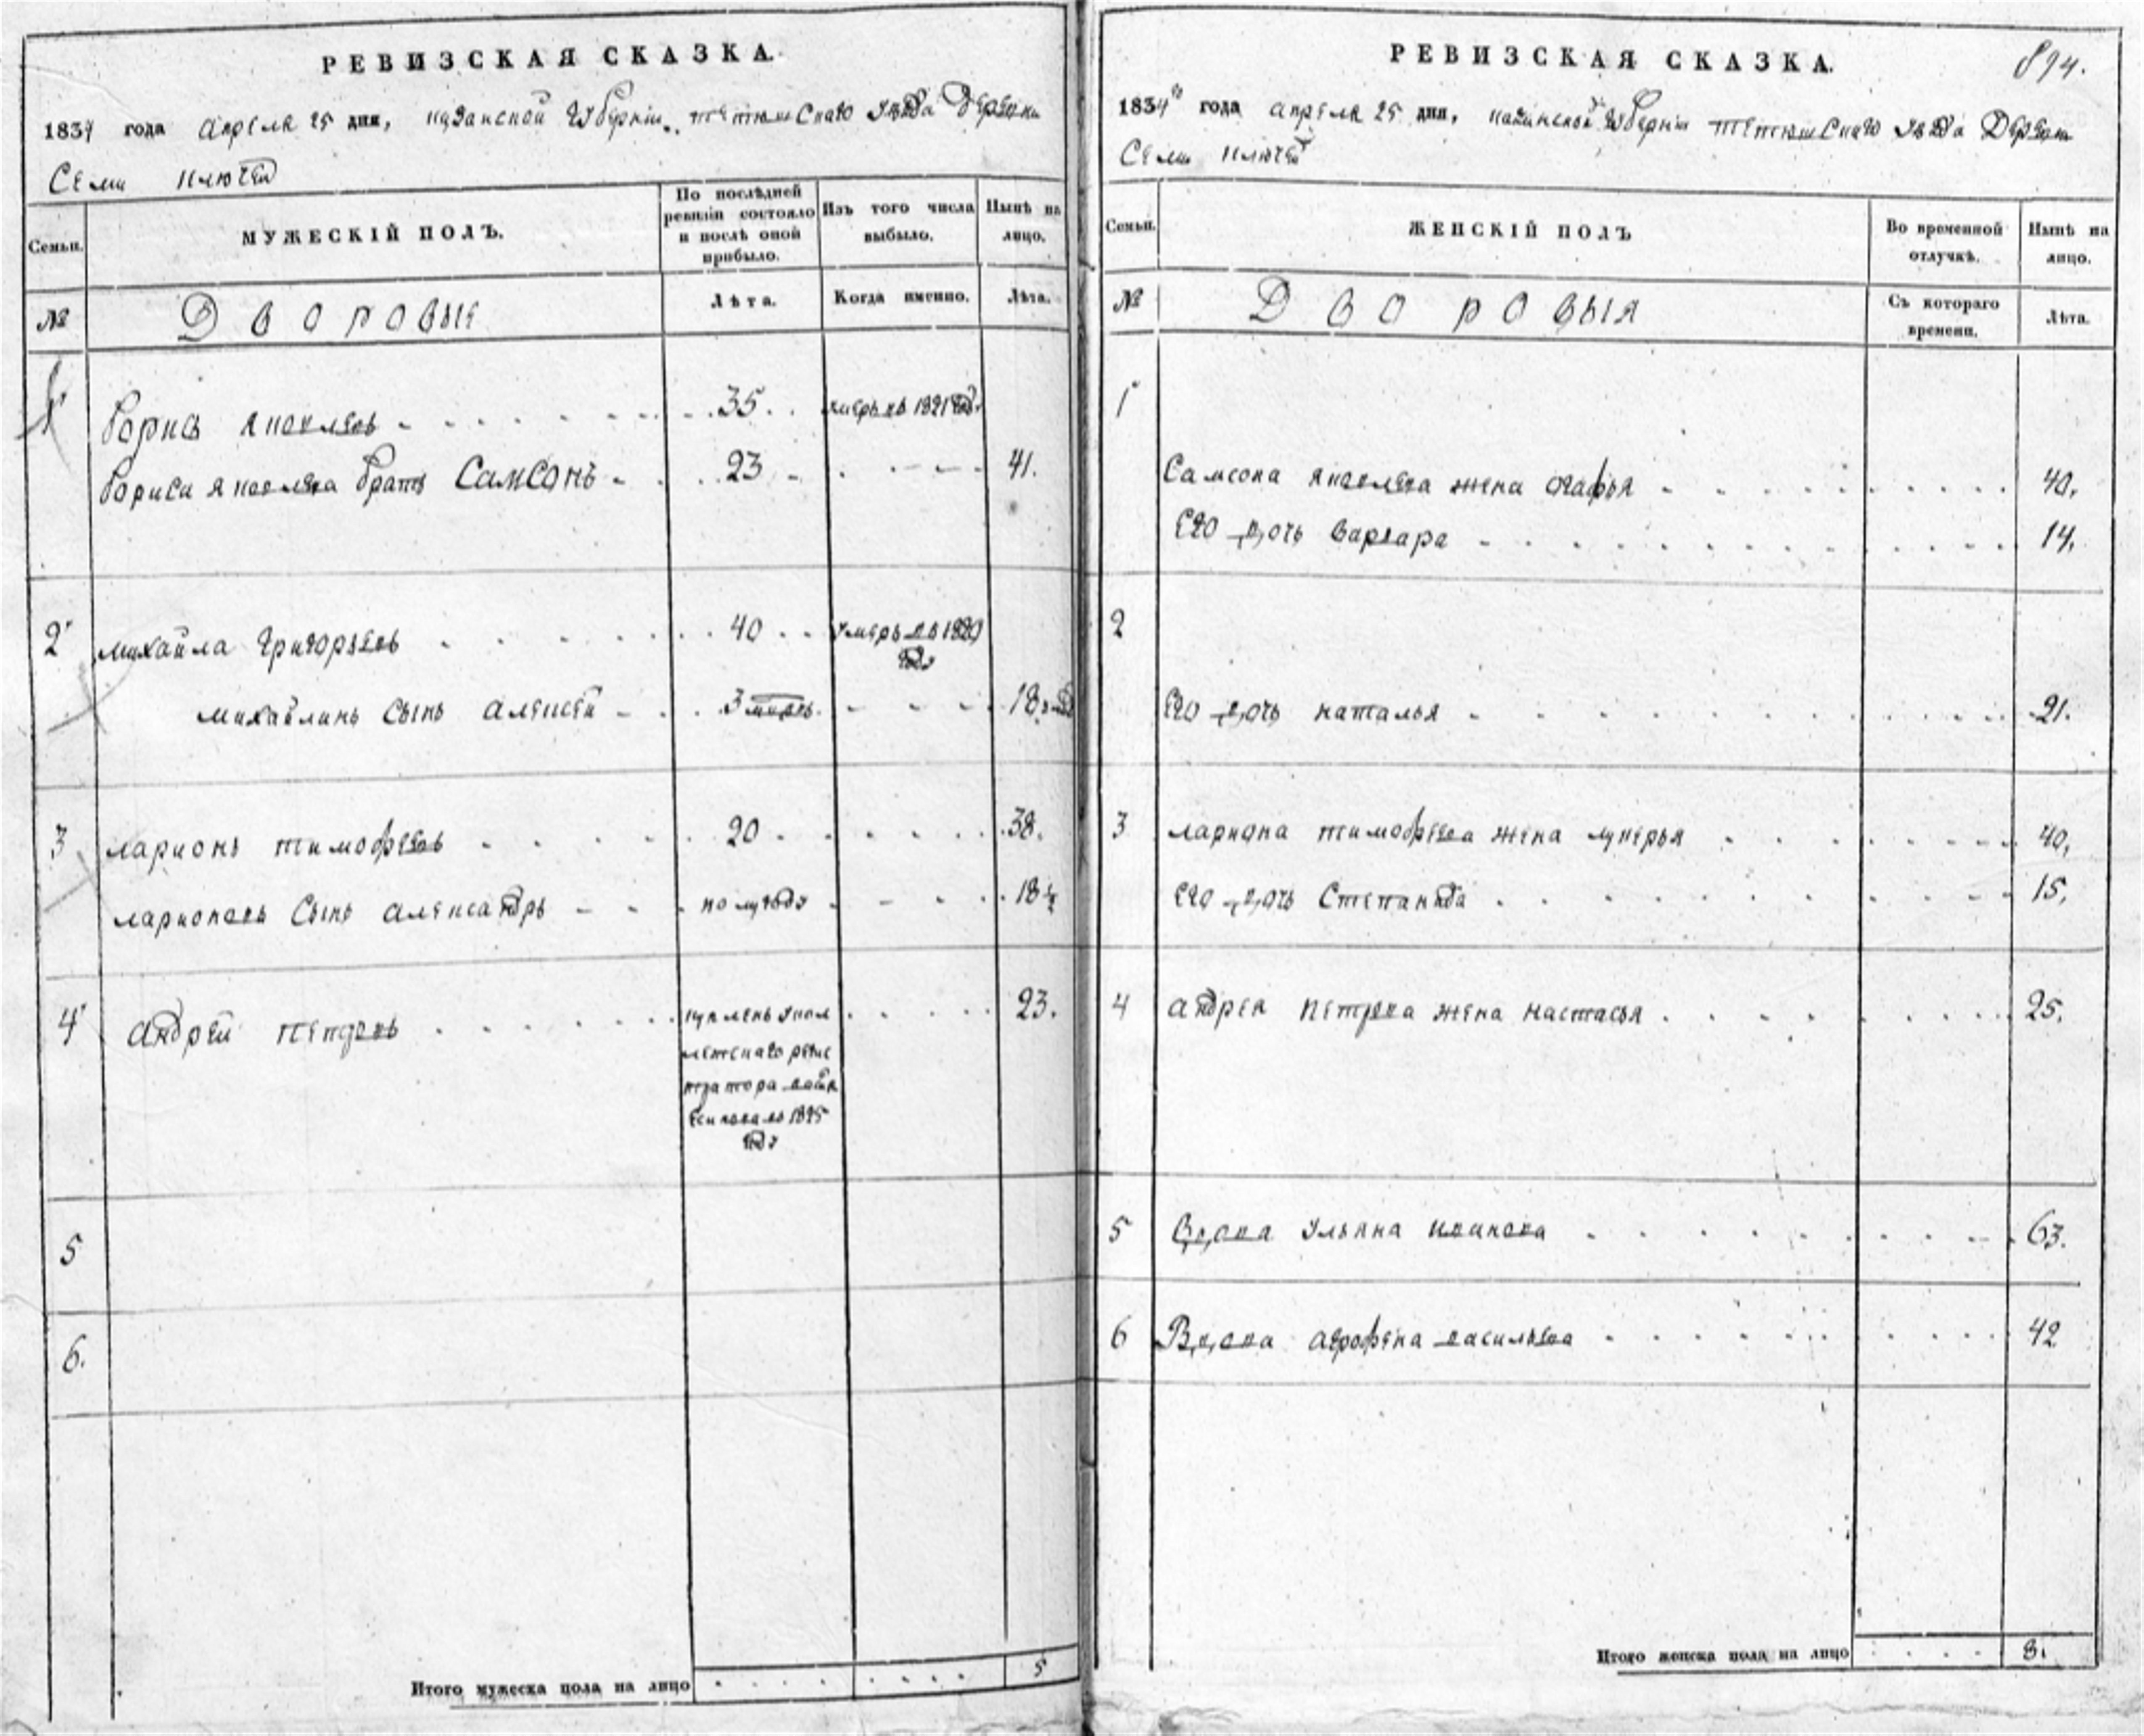 РЕВИЗСКАЯ СКАЗКА.
1834 года апреля 25 дня, казанской губернии тетюшскаго уезда Деревни
Семи ключей
Семьи.
МУЖЕСКІЙ ПОЛЪ.
По послѣдней ревизіи состояло и послѣ оной прибыло.
Изъ того числа выбыло.
Нынѣ на лицо.
№
Дворовыя
Лѣта.
Когда именно.
Лѣта.
1
Борисъ яковлевъ 35. умеръ въ 1821 году
Бориса яковлева братъ Самсонъ 23 41.
2
михайла григорьевъ 40 умеръ въ
году
михайлинъ сынъ алексей 3 18
3
ларионъ тимофеевъ 20 38.
ларионовъ сынъ александръ полугоду 18½
4
андрей петровъ купленъ у кол 23.
лежскаго регис
тратора
1825
году
5
6.
Итого мужеска пола на лицо 5
РЕВИЗСКАЯ СКАЗКА.
894.
1834го года апреля 25 дня, казанской губернии тетюшскаго уезда Деревни
Семи ключей
Семьи.
ЖЕНСКІЙ ПОЛЪ
Во временной отлучкѣ.
Нынѣ на лицо.
№
Дворовыя
Съ котораго времени.
Лѣта.
1
Самсона яковлева жена агафья 40.
Его дочь варвара 14.
2
Его дочь наталья 21.
3 лариона тимофеева жена лукерья 40.
Его дочь Степанида 15.
4 андрея петрова жена настасья 25.
5 Вдова ульяна иванова 63.
6 Вдова аграфена васильева 42
Итого женска пола на лицо 8.